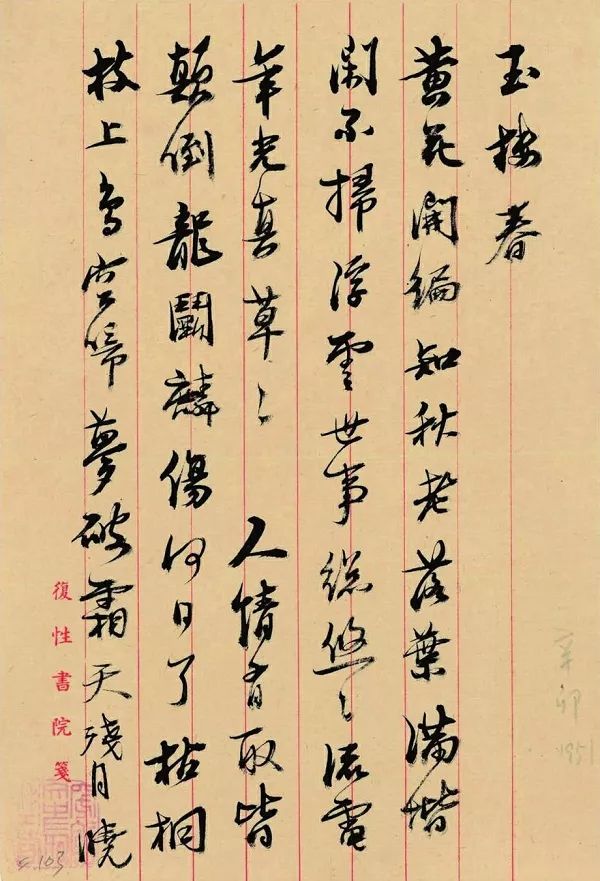 玉楼春
黄花開徧知秋老落葉滿堦
閑不掃浮雲世事總悠〻流電
年光真草〻 人情看取皆
顛倒龍鬭麟傷何日了枯桐
枝上鳥空啼夢破霜天殘月曉
復性書院箋
辛卯
1951